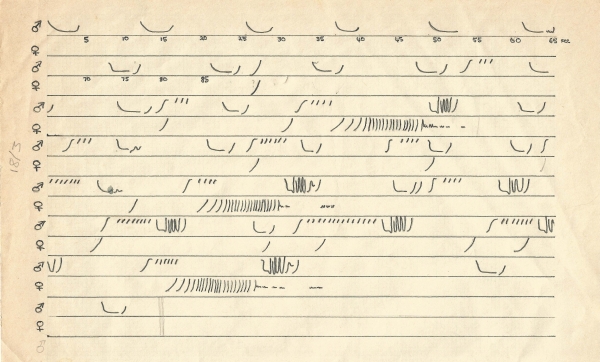 ♂
♀ 5 10 15 20 25 30 35 40 45 50 55 60 65 sec
♂
♀ 70 75 80 85
♂
♀
♂
18/3
♀
♂
♀
♂
♀
♂
♀
♂
♀